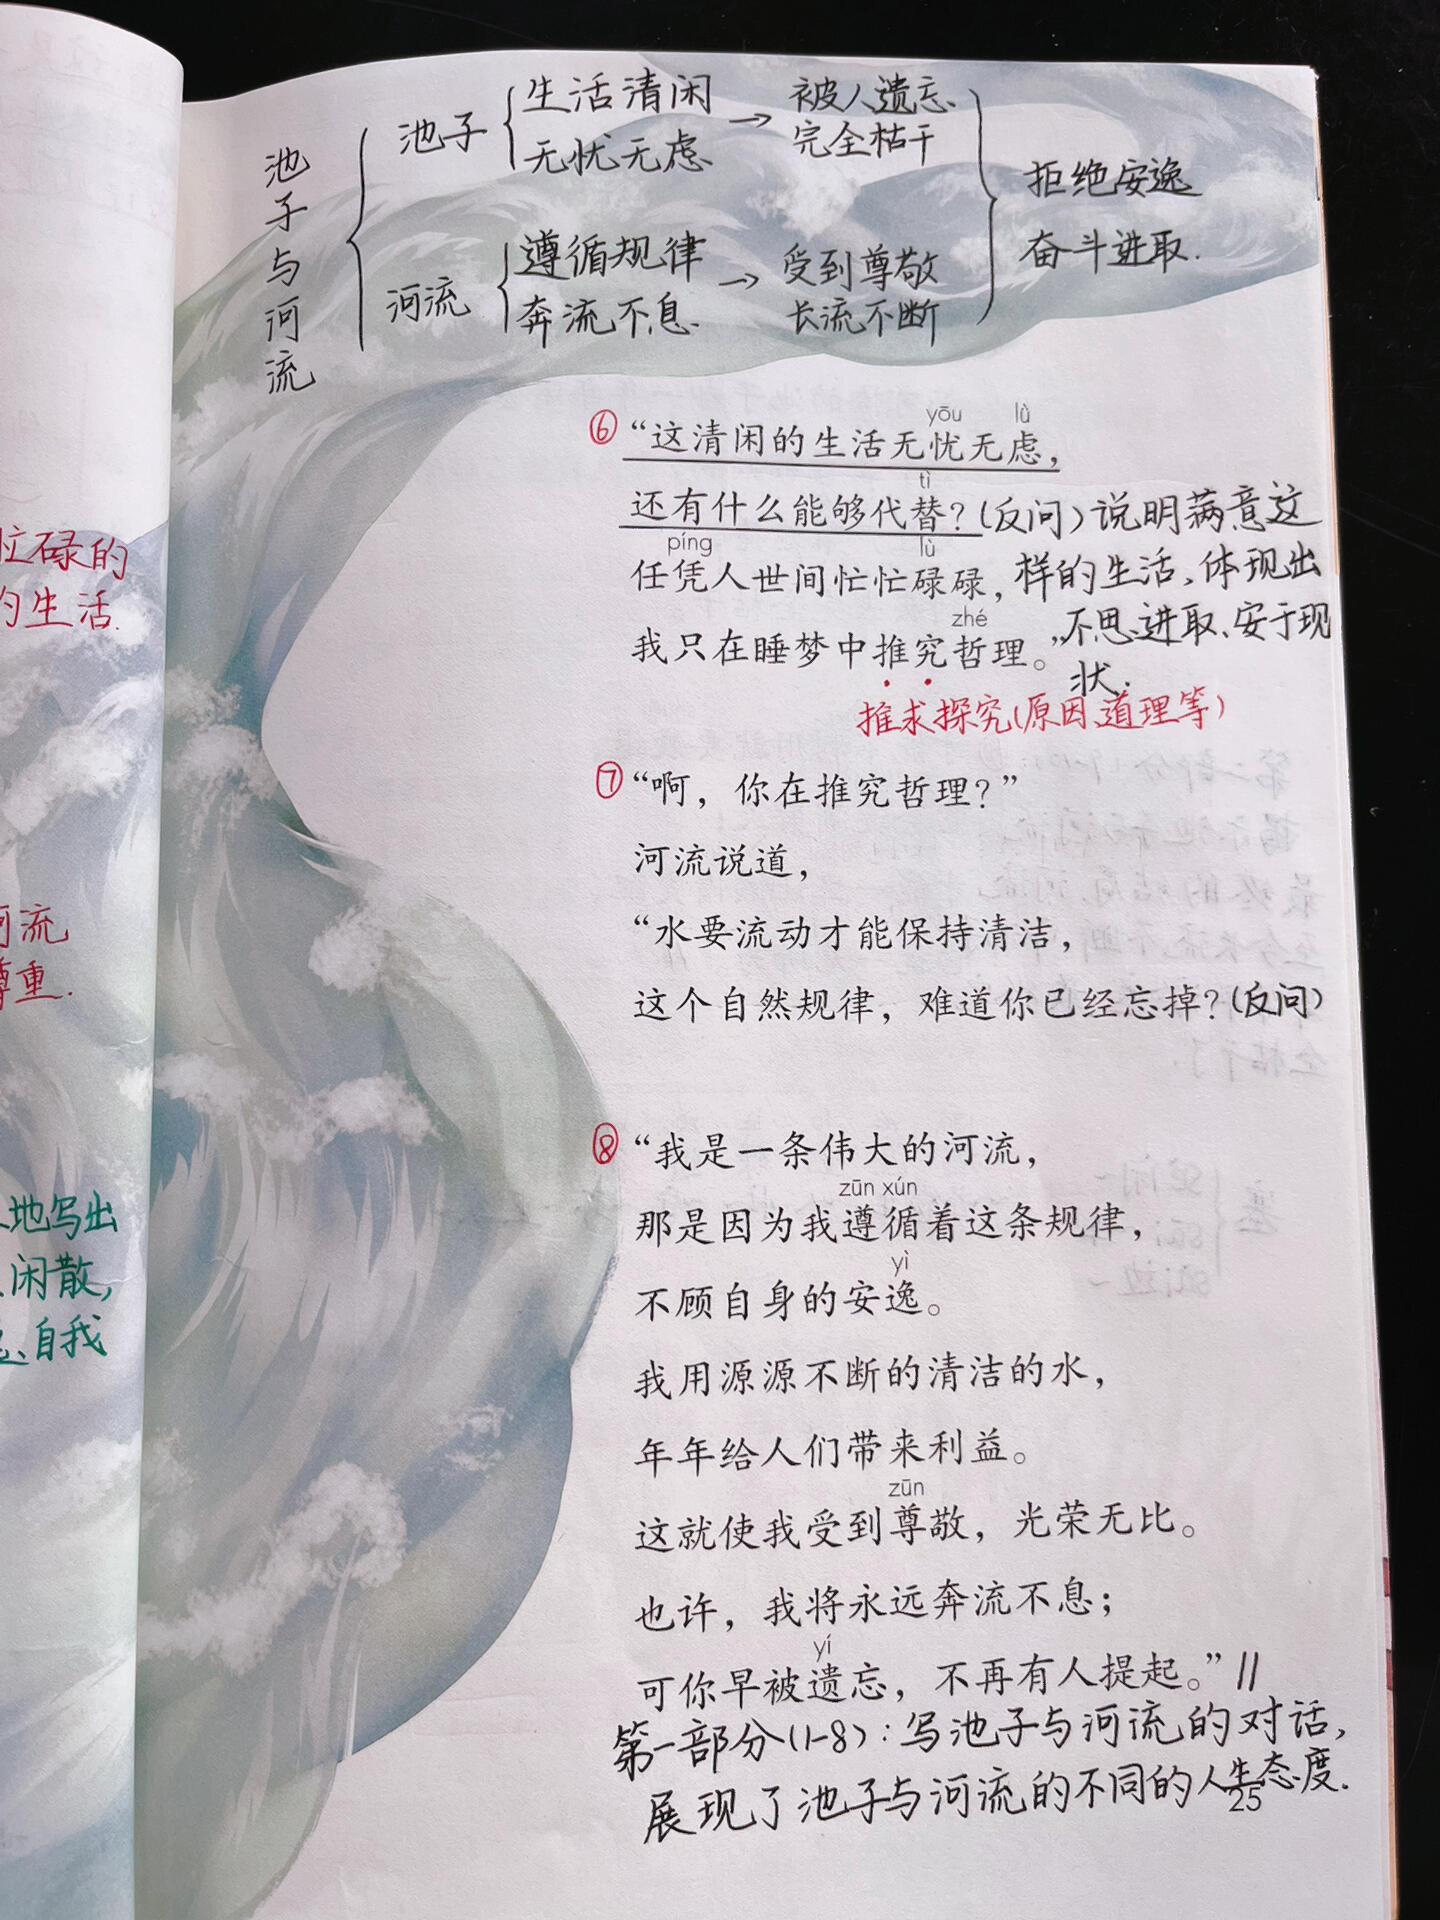 池子与河流
池子
生活清闲
无忧无虑
→
被人遗忘
完全枯干
河流
遵循规律
奔流不息
→
受到尊敬
长流不断
拒绝安逸
奋斗进取.
yōu lù
⑥“这清闲的生活无忧无虑，
tì
还有什么能够代替？(反问)说明满意这
píng lù
任凭人世间忙忙碌碌，样的生活、体现出
zhé
我只在睡梦中推究哲理。”不思进取、安于现
状.
推求探究(原因、道理等)
⑦“啊，你在推究哲理？”
河流说道，
“水要流动才能保持清洁，
这个自然规律，难道你已经忘掉？(反问)
⑧“我是一条伟大的河流，
zūn xún
那是因为我遵循着这条规律，
yì
不顾自身的安逸。
我用源源不断的清洁的水，
年年给人们带来利益。
zūn
这就使我受到尊敬，光荣无比。
也许，我将永远奔流不息；
yí
可你早被遗忘，不再有人提起。”//
第一部分(1-8)：写池子与河流的对话，
展现了池子与河流的不同的人生态度.
25
碌的
的生活.
河流
尊重.
地写出
闲散，
自我